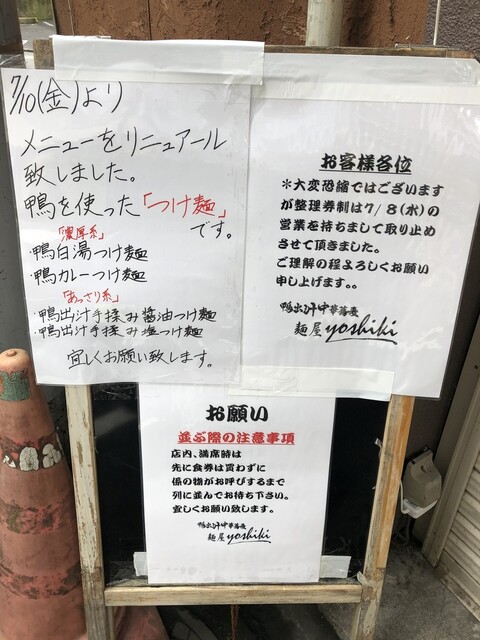 7/10(金)より
メニューをリニュアール
致しました。
鴨を使った「つけ麺」
です。
「濃厚系」
・鴨白湯つけ麺
・鴨カレーつけ麺
「あっさり系」
・鴨出汁手揉み醤油つけ麺
・鴨出汁手揉み塩つけ麺
宜しくお願い致します。
お客様各位
＊大変恐縮ではございます
が整理券制は7/8(水)の
営業を持ちまして取り止め
させて頂きました。
ご理解の程よろしくお願い
申し上げます。。
鴨出汁中華蕎麦
麺屋yoshiki
お願い
並ぶ際の注意事項
店内、満席時は
先に食券は買わずに
係の物がお呼びするまで
列に並んでお待ち下さい。
宜しくお願い致します。
鴨出汁中華蕎麦
麺屋yoshiki